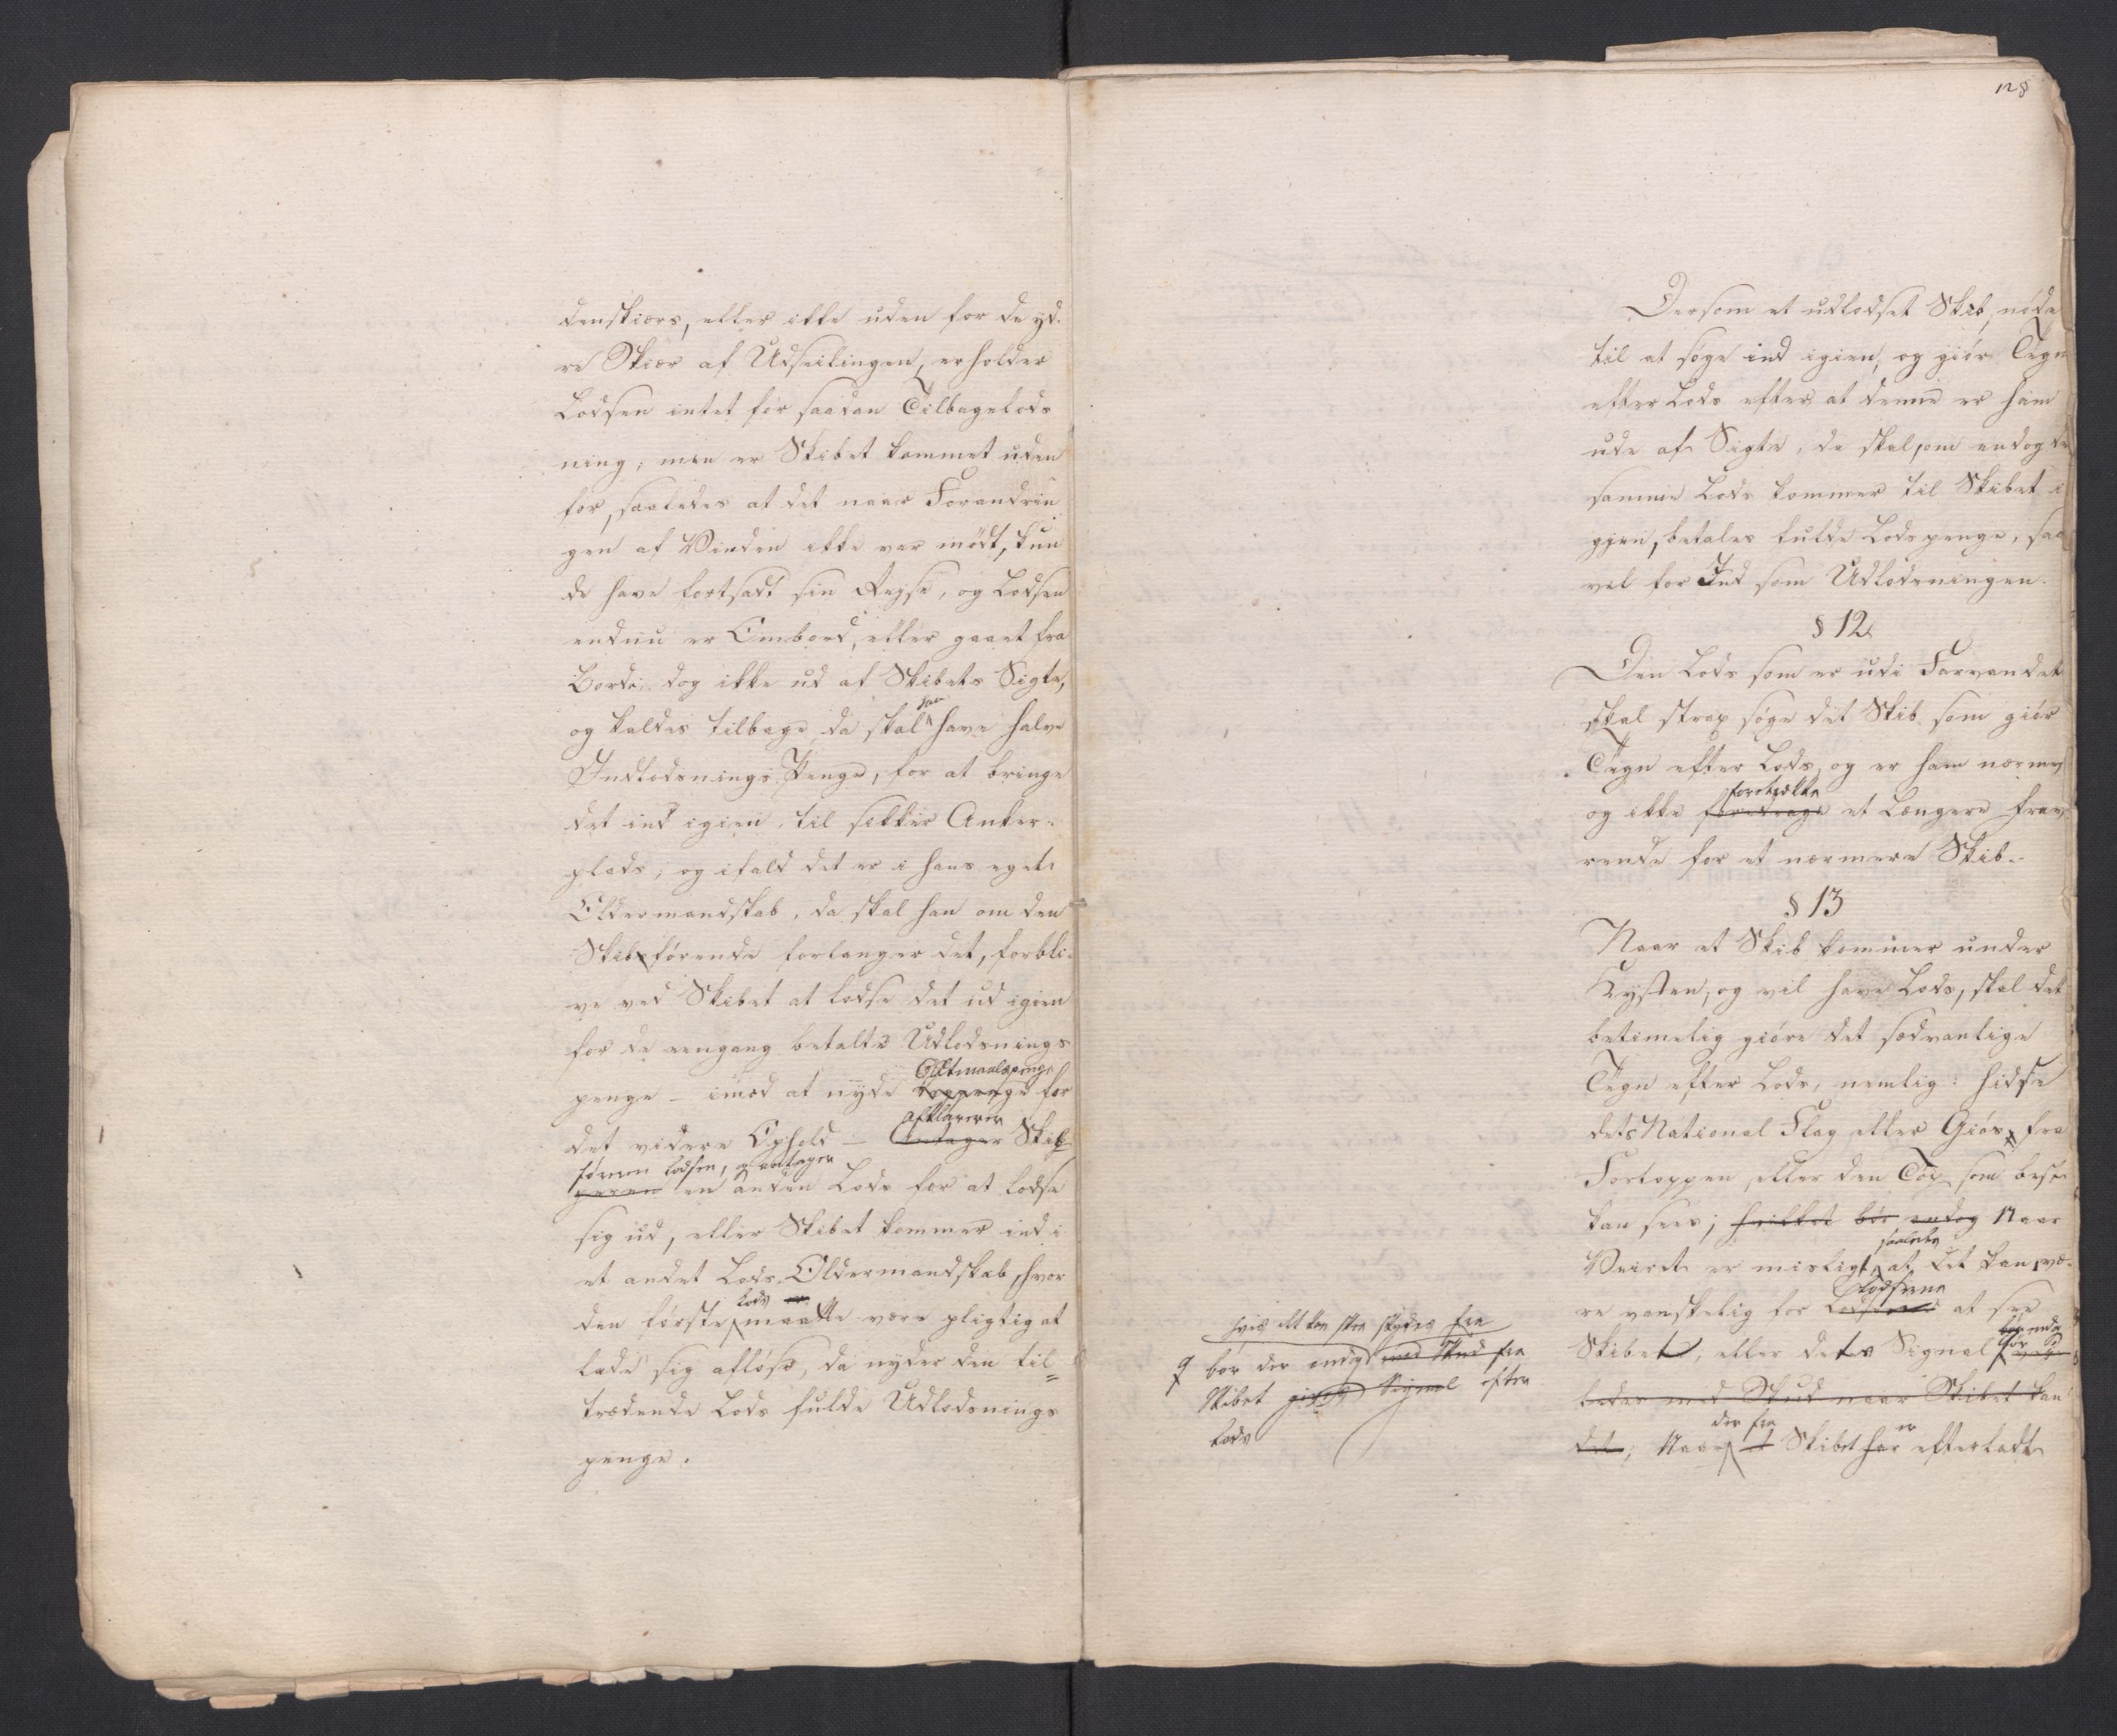 denskiærs, eller ikke uden for de yd-
re Skiær af Udseilingen, erholder
Lodsen intet for saadan Tilbagelods
ning; men er Skibet kommet uden
for, saaledes at det naar Forandrin
gen af Vinden ikke var mødt, kun
de have fortsadt sin Rejse, og Lodsen
endnu er Ombord, eller gaaet fra
Borde, dog ikke ud af Skibets Sigte,
han
og kaldes tilbage, da skal have halve
Indlodsnings Penge, for at bringe
det ind igien til sikker Anker-
plads; og ifald det er i hans eget
Oldermandskab, da skal han om den
Skibsførende forlanger det, forbli-
ve ved Skibet at lodse det ud igien
for de eengang betalte Udlodsnings
Oltmaalspenge
penge - imod at nyde for
afklarerer
det videre Ophold - Antager Skib
føreren Lodsen, og antager
peren en anden Lods for at lodse
sig ud, eller Skibet kommer ind i
et andet Lods Oldermandskab, hvor
Lods
den første maatte være pligtig at
lade sig afløse, da nyder den til-
trædende Lods fulde Udlodsnings
penge.
128
Dersom et udlodset Skib, nødes
til at søge ind igien, og giør Tegn
efter Lods efter at denne er ham
ude af Sigte, da skal, om endog de
samme Lods kommer til Skibet i
gjen, betales fulde Lodspenge, saa
vel for Ind som Udlodsningen.
§ 12
Den Lods som er udi Farvandet
skal strax søge det Skib som giør
Tegn efter Lods, og er ham nærmes
foretrække
og ikke foredrage et længere frav
rende for et nærmere Skib.
§ 13
Naar et Skib kommer under
Kysten, og vil have Lods, skal det
betimelig giøre det sædvanlige
Tegn efter Lods, nemlig: hidse
dets National Flag eller Giøs fra
Fortoppen, eller den Top som best
kan sees; hvilket bør endog Naar
saaledes
Veiret er misligt, at det kan væ-
Lodserne
re vanskelig for Lodserne at see
bør endog
Skibet, eller dets Signal bør
ledes med Skud naar Skibet kan
der fra er
det; Naar et Skibet har efterladt
hvis det kan skee skydes fra
bør der endog med Skud fra
Skibet gives Signal efter
Lods